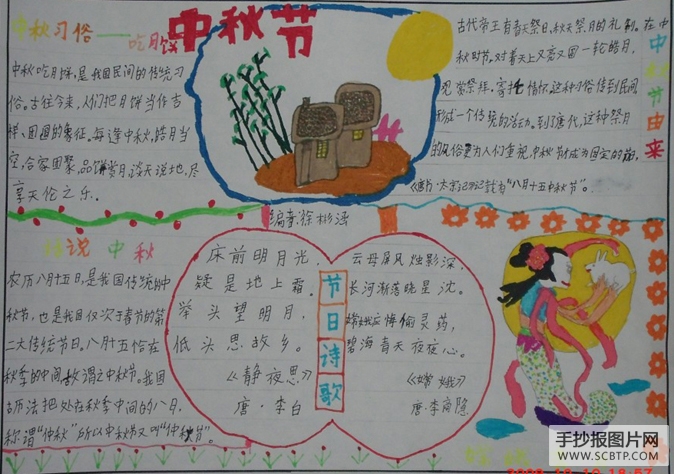 中秋节
中秋习俗——吃月饼
中秋吃月饼,是我国民间的传统习
俗。古往今来,人们把月饼当作吉
祥、团圆的象征。每逢中秋,皓月当
空,合家团聚,品饼赏月,谈天说地,尽
享天伦之乐。
中秋节由来
古代帝王有春天祭日,秋天祭月的礼制。在中
秋时节。对着天上又亮又圆一轮皓月,
观赏祭拜,寄托情怀,这种习俗传到民间
形成一个传统的活动。到了唐代,这种祭月
的风俗更为人们重视,中秋节才成为固定的
《唐书·太宗记》记载为“八月十五中秋节”。
编者:徐彬涵
说中秋
农历八月十五日,是我国传统的中
秋节,也是我国仅次于春节的第
二大传统节日。八月十五恰在
秋季的中间,故谓之中秋节。我国
古历法把处在秋季中间的八月,
称谓“仲秋”所以中秋节又叫“仲秋节”。
床前明月光,
疑是地上霜。
举头望明月,
低头思故乡。
《静夜思》
唐·李白
节日诗歌
云母屏风烛影深,
长河渐落晓星沈。
嫦娥应悔偷灵药,
碧海青天夜夜心。
《嫦娥》
唐·李商隐
手抄报图片网
WWW.SCBTP.COM